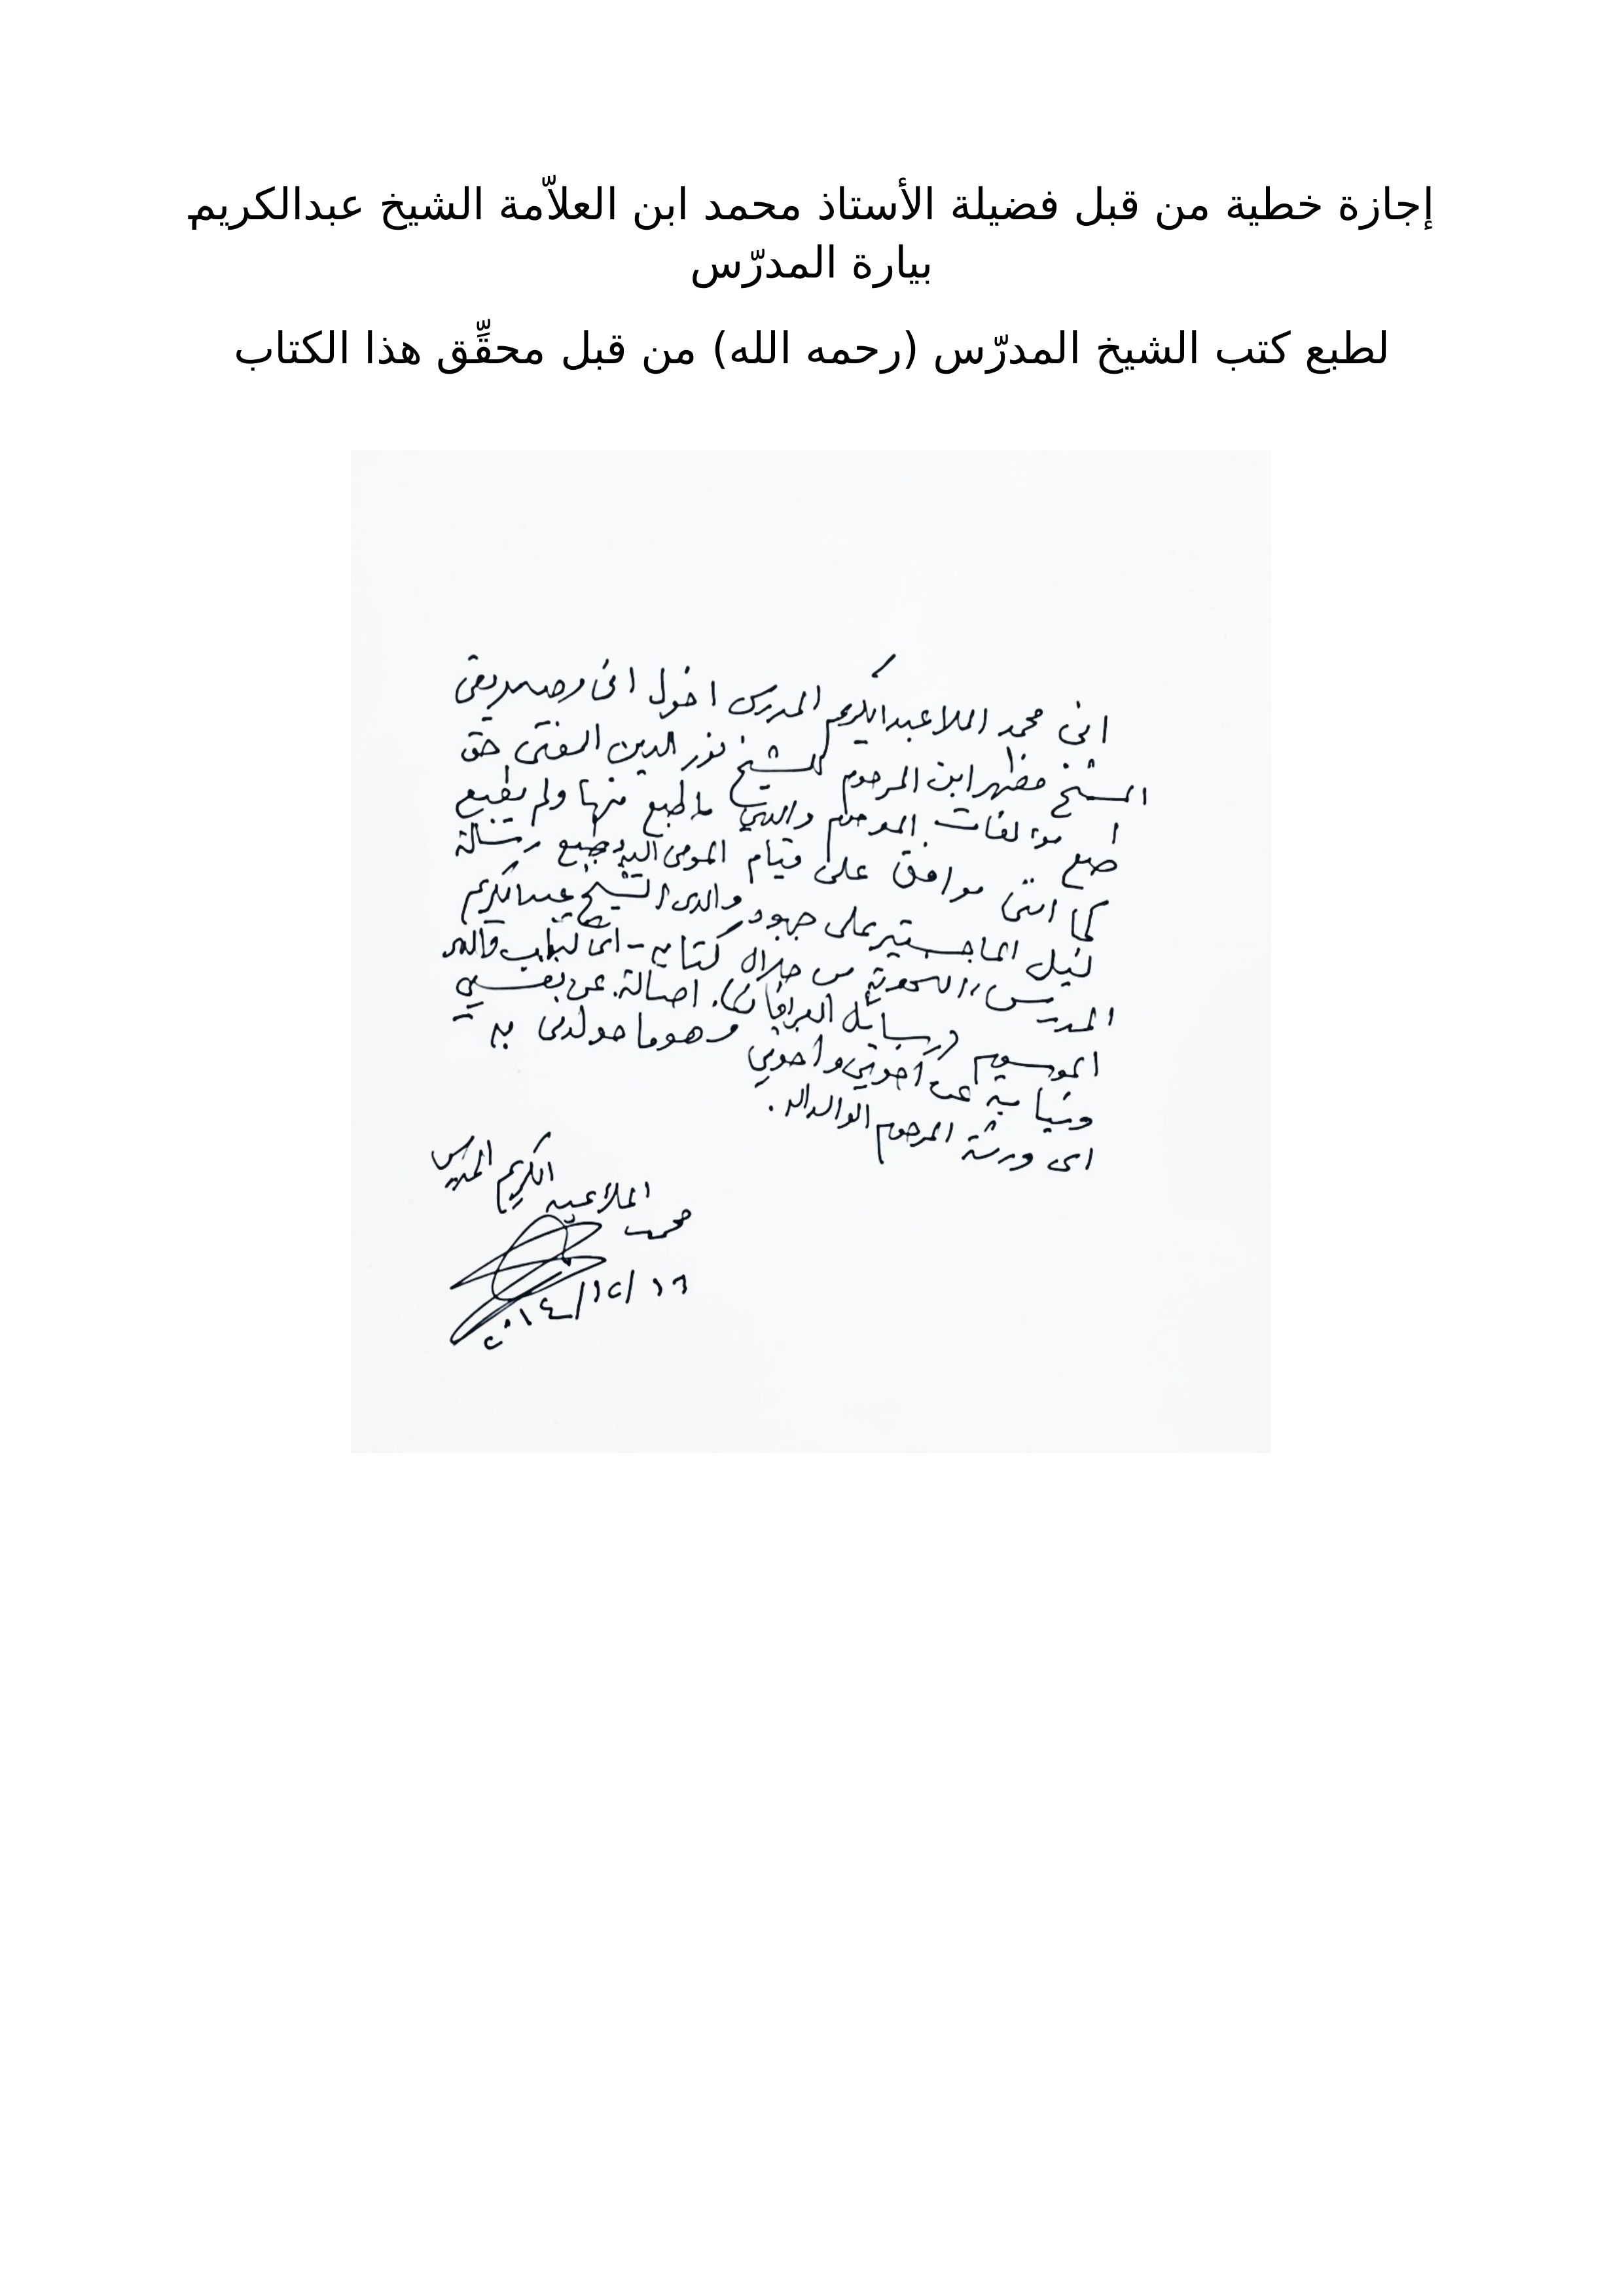 إجازة خطية من قبل فضيلة الأستاذ محمد ابن العلاّمة الشيخ عبدالكريم
بيارة المدرّس
لطبع كتب الشيخ المدرّس (رحمه الله) من قبل محقِّق هذا الكتاب
انى محمد الملا عبدالكريم المدرس اخول اخى وصديقى
الشيخ مظهر ابن المرحوم الشيخ نور الدين المفتى حق
طبع مؤلفات المرحوم والدي ما طبع منها ولم يطبع
كما اننى موافق على قيام المومى اليه بطبع رسالة
لنيل الماجستير على جهود والدى الشيخ عبدالكريم
المدرس النحوية من خلال كتابه
الموسوم اصالة عن نفسي
ونيابة عن اخوتي واخوتي وهو ما خولدنى به
اى ورثة المرحوم الوالد
محمد الملا عبد الكريم المدرس
١٦/١٢/٢٠١٤